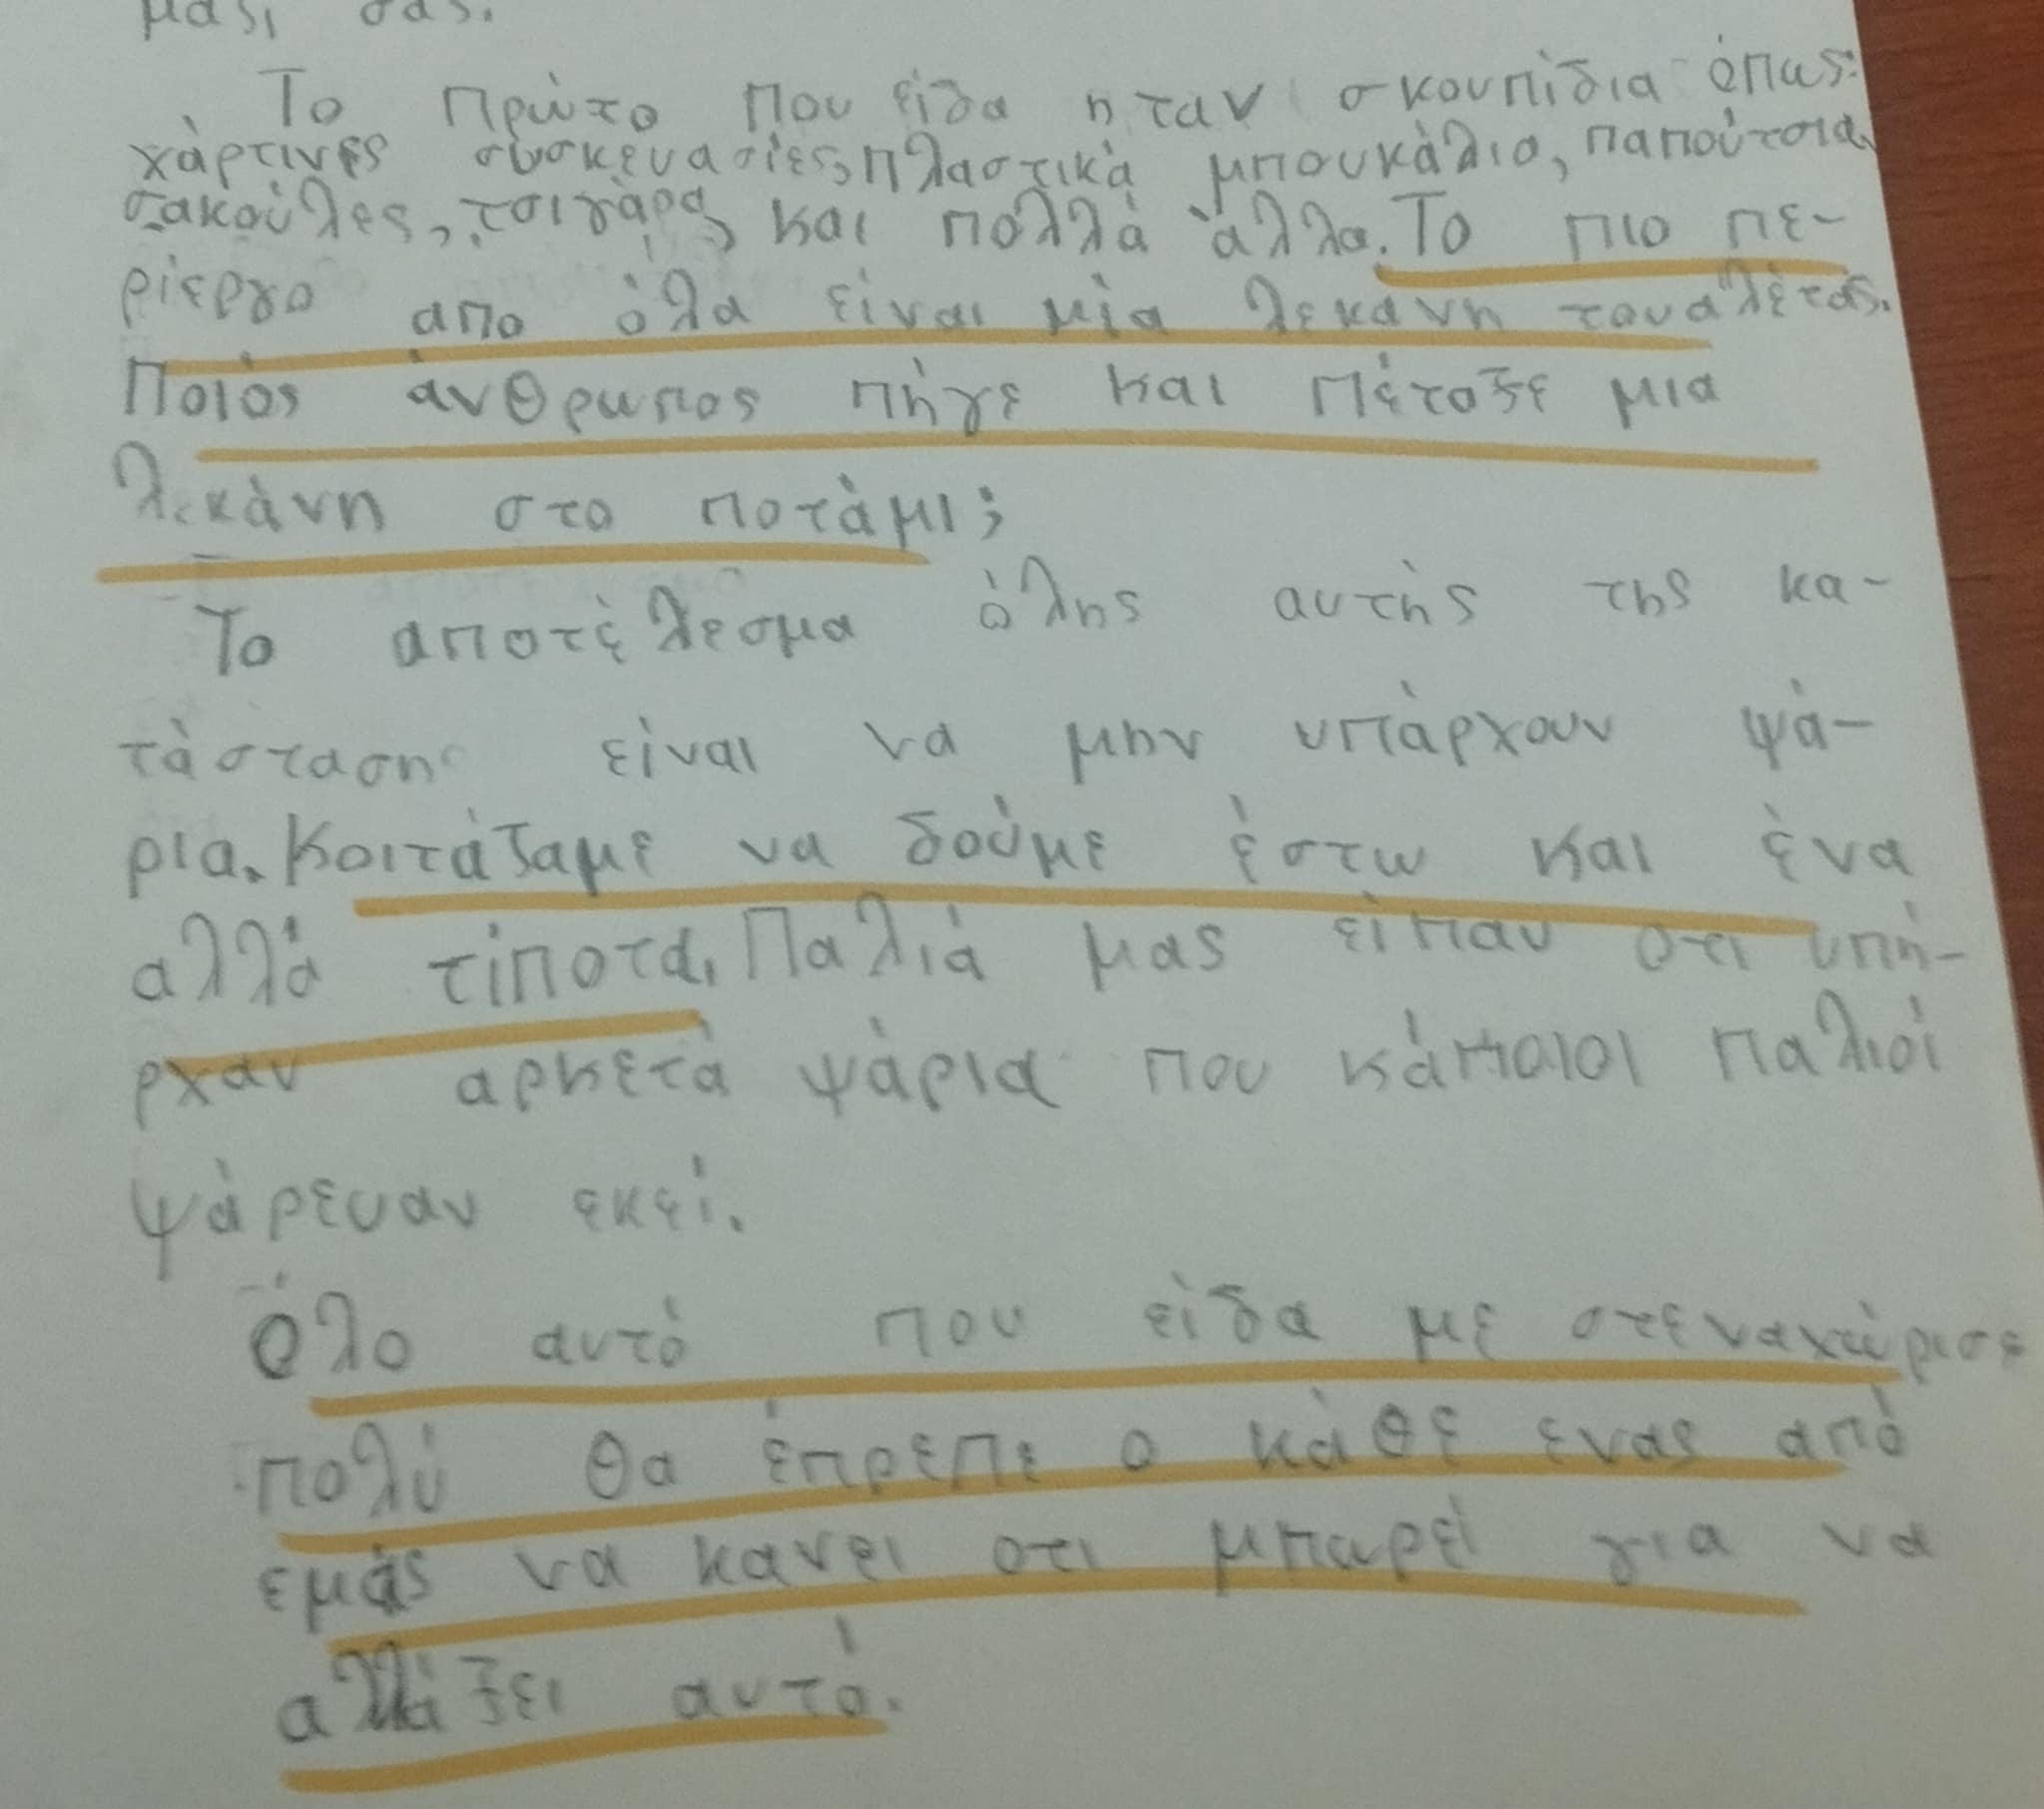 μας, σας.
Το πρώτο που είδα ηταν σκουπίδια όπως:
χάρτινες συσκευασίες, πλαστικά μπουκάλια, παπούτσια,
σακούλες, τσιγάρα, και πολλά άλλα. Το πιο πε-
ρίεργο απο όλα είναι μία λεκανη τουαλέτας.
Ποιός άνθρωπος πήγε και πέταξε μια
λεκάνη στο ποτάμι;
Το αποτέλεσμα όλης αυτής της κα-
τάστασης είναι να μην υπάρχουν ψά-
ρια. Κοιτάζαμε να δούμε έστω και ένα
αλλά τίποτα, Παλιά μας είπαν οτι υπή-
ρχαν αρκετά ψάρια που κάποιοι παλιοί
ψάρευαν εκεί.
Όλο αυτό που είδα με στεναχώρισε
πολύ θα έπρεπε ο κάθε ενας από
εμάς να κανει οτι μπωρεί για να
αλλάξει αυτό.